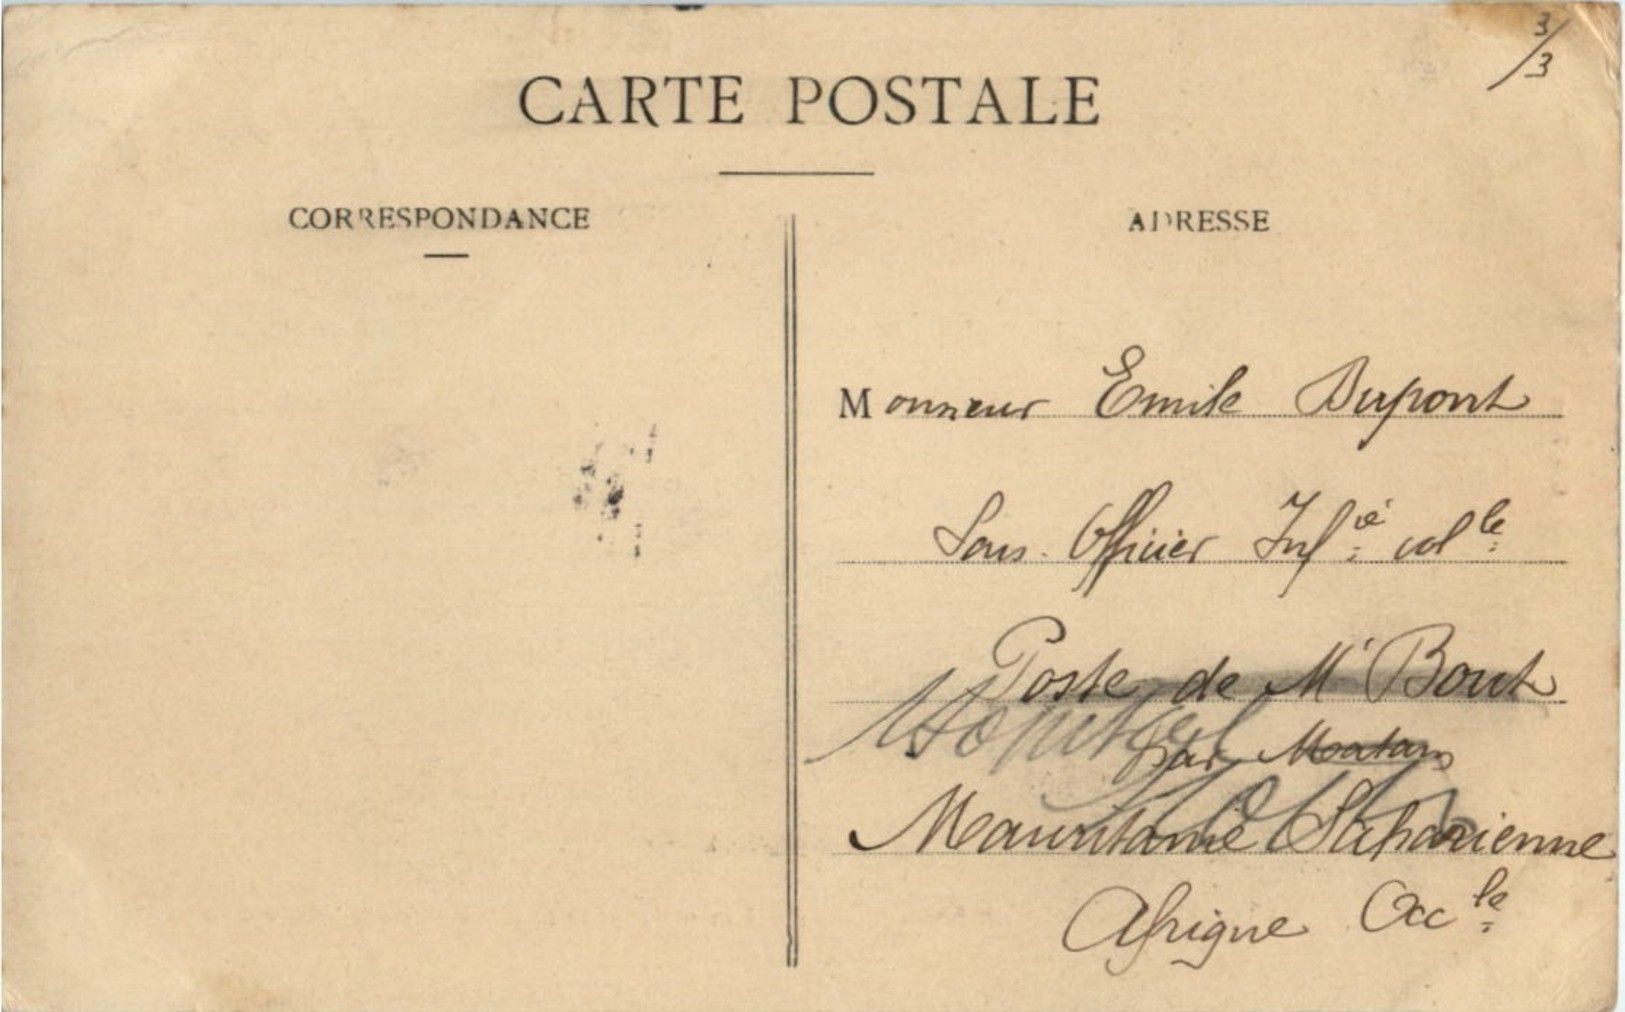 3/3
CARTE POSTALE
CORRESPONDANCE
ADRESSE
Monsieur Emile Dupont
Sous-Officier Inf ie col le
Poste de M'Bout
Hopital
par Matam
Mauritanie Saharienne
Afrique Occ le